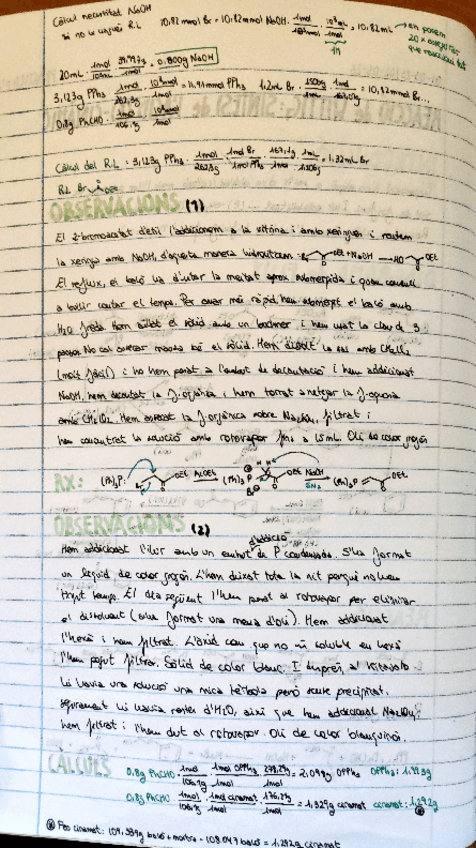 Càlcul necessitat NaOH
si no hagués R.L
10,82 mmol Br = 10,82 mmol NaOH · 1mol/10³mmol · 10³mL/1M = 10,82 mL
20mL · 39,997g/10³mL · 1mol/1mol = 0,800g NaOH
3,123g PPh₃ · 1mol/262,3g · 10³mmol/1mol = 11,91 mmol PPh₃ 1,2mL Br
= 10,82 mmol Br...
0,8g PhCHO · 1mol/106,1g · 10³mmol/1mol
Càlcul del R.L = 3,123g PPh₃ · 1mol/262,3g · 1mol Br/1mol PPh₃ · 167,1g/1mol · 1mL = 1,32 mL Br
R.L Br OEt
OBSERVACIONS (1)
El 2-bromoacetat d'etil l'addicionem a la vitrina i amb xeringa i rentem
la xeringa amb NaOH, d'aquesta manera hidrolitzem OEt + NaOH → HO OEt
El reflux, el baló ha d'estar la meitat aprox submergida i quan comenci
a bullir contar el temps. Per anar més ràpid hem submergit el baló amb
H₂O freda. Hem aïllat el sòlid amb un büchner i hem usat la clau de 3
passos. No cal assecar massa bé el sòlid. Hem dissolt la sal amb CH₂Cl₂
i ho hem posat a l'embut de decantació i hem addicionat
NaOH, hem decantat la f.orgànica i hem tornat a netejar la f.aquosa
amb CH₂Cl₂. Hem assecat la f.orgànica sobre Na₂SO₄, filtrat i
hem concentrat la solució amb rotavapor fins a 15mL. Oli de color groguenc
RX: (Ph)₃P: Br OEt AcOEt (Ph)₃P H H OEt Br NaOH SN2 (Ph)₃P OEt
OBSERVACIONS (2)
d'addició
Hem addicionat l'ilur amb un embut de P compensada. S'ha format
un líquid de color groguenc. L'hem deixat tota la nit perquè no hem
tingut temps. El dia següent l'hem portat al rotavapor per eliminar
el dissolvent (s'ha format una mena d'oli). Hem addicionat
l'hexà i hem filtrat. L'òxid com que no és soluble en hexà
l'hem pogut filtrar. Sòlid de color blanc. I després al kitasato
hi havia una solució una mica tèrbola però sense precipitat.
Segurament hi havia restes d'H₂O, així que hem addicionat Na₂SO₄,
hem filtrat i l'hem dut al rotavapor. Oli de color blanquinós.
CÀLCULS
0,8g PhCHO · 1mol/106,1g · 1mol OPPh₃/1mol · 278,29g/1mol = 2,098g OPPh₃ OPPh₃: 1,923g
0,8g PhCHO · 1mol/106,1g · 1mol cinamat/1mol · 176,21g/1mol = 1,329g cinamat cinamat: 1,292g
⊛ Pes cinamat: 109,339g baló + mostra - 108,047 baló = 1,292g cinamat